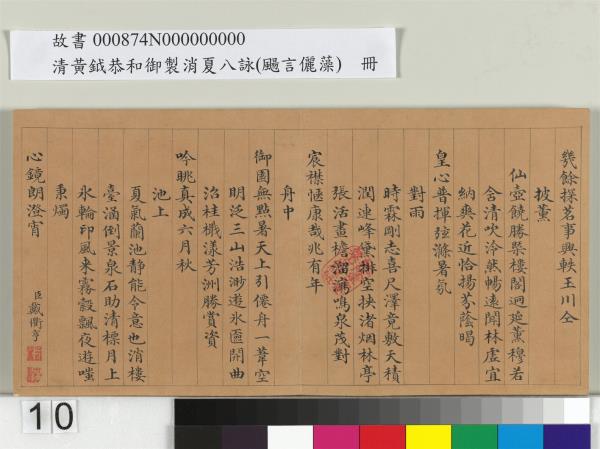 故書 000874N000000000
清黃鉞恭和御製消夏八詠(颺言儷藻) 冊
幾餘採茗事興軼玉川仝
披薰
仙壺饒勝槩樓閣迥延薰穆若
含清吹泠然暢遠聞林虛宜
納爽花近恰揚芬蔭暍
皇心普揮弦滌暑氛
對雨
時霖剛志喜尺澤竟敷天積
潤連峰黛排空挾渚烟林亭
張活畫檐溜瀉鳴泉茂對
宸襟愜康哉兆有年
舟中
御園無點暑天上引僊舟一葦空
明泛三山浩渺遊氷匳開曲
沼桂檝漾芳洲勝賞資
吟眺真成六月秋
池上
夏氣蘭池靜能令意也消樓
臺涵倒景泉石助清標月上
氷輪印風来霧縠飄夜遊嗤
秉燭
心鏡朗澄宵
臣戴衢亨
10